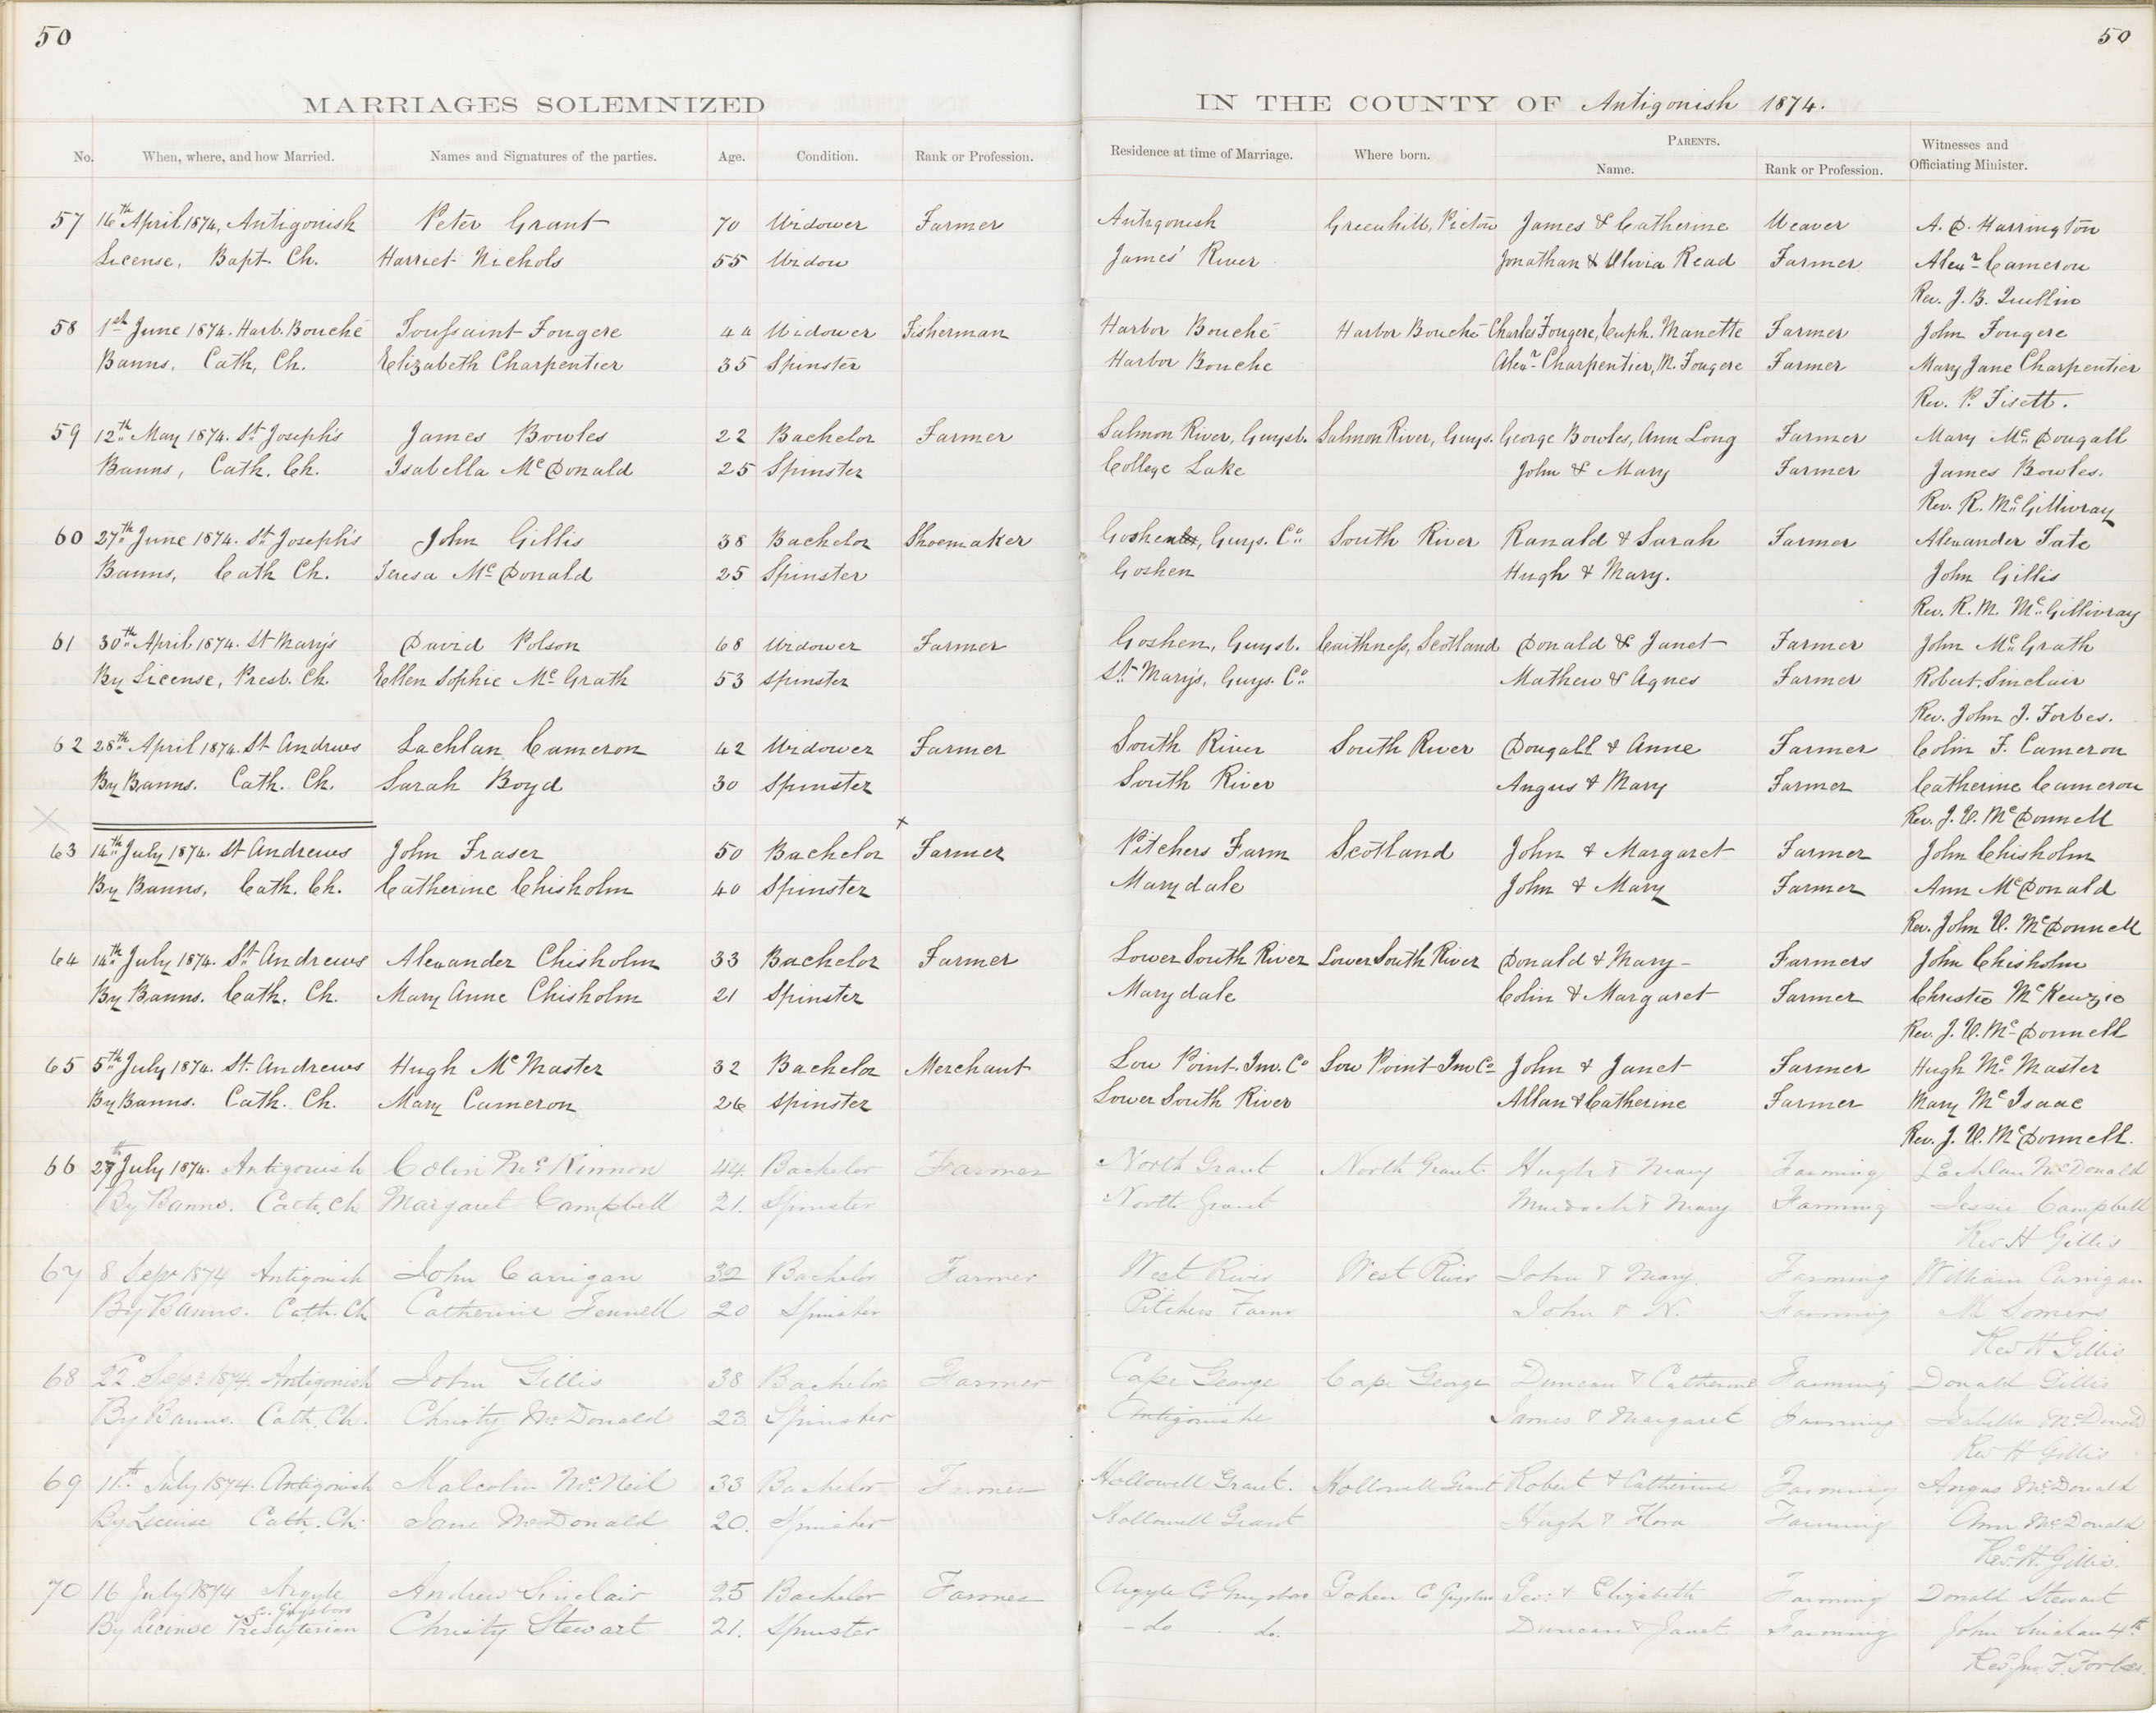 50
50
MARRIAGES SOLEMNIZED IN THE COUNTY OF Antigonish 1874.
No. When, where, and how Married. Names and Signatures of the parties. Age. Condition. Rank or Profession. Residence at time of Marriage. Where born. PARENTS. Name. Rank or Profession. Witnesses and Officiating Minister.
57 16th April 1874, Antigonish Peter Grant 70 Widower Farmer Antigonish Greenhill, Pictou James & Catherine Weaver A. D. Harrington
License, Bapt. Ch. Harriet Nichols 55 Widow James' River Jonathan & Olivia Read Farmer Alexr Cameron
Rev. J. B.
58 1st June 1874. Harb. Bouché Toussaint Fougere 44 Widower Fisherman Harbor Bouché Harbor Bouché Charles Fougere, Euph. Manette Farmer John Fougere
Banns, Cath, Ch. Elizabeth Charpentier 35 Spinster Harbor Bouche Alexr Charpentier, M. Fougere Farmer Mary Jane Charpentier
Rev. P. Fisett.
59 12th May 1874. St Joseph's James Bowles 22 Bachelor Farmer Salmon River, Guysb. Salmon River, Guys. George Bowles, Ann Long Farmer Mary McDougall
Banns, Cath. Ch. Isabella McDonald 25 Spinster College Lake John & Mary Farmer James Bowles.
Rev. R. McGillivray
60 27th June 1874. St Joseph's John Gillis 38 Bachelor Shoemaker Goshen, Guys. Co South River Ranald & Sarah Farmer Alexander Tate
Banns, Cath Ch. Teresa McDonald 25 Spinster Goshen Hugh & Mary. John Gillis
Rev. R. M. McGillivray
61 30th April 1874. St Mary's David Polson 68 Widower Farmer Goshen, Guysb. Caithness, Scotland Donald & Janet Farmer John McGrath
By License, Presb. Ch. Ellen Sophie McGrath 53 Spinster St Mary's, Guys. Co Mathew & Agnes Farmer Robert Sinclair
Rev. John J. Forbes.
62 28th April 1874. St Andrews Lachlan Cameron 42 Widower Farmer South River South River Dougall & Anne Farmer Colin F. Cameron
By Banns. Cath. Ch. Sarah Boyd 30 Spinster South River Angus & Mary Farmer Catherine Cameron
Rev. J. V. McDonnell
63 14th July 1874. St Andrews John Fraser 50 Bachelor x Farmer Pitchers Farm Scotland John & Margaret Farmer John Chisholm
By Banns, Cath. Ch. Catherine Chisholm 40 Spinster Marydale John & Mary Farmer Ann McDonald
Rev. John V. McDonnell
64 14th July 1874. St Andrews Alexander Chisholm 33 Bachelor Farmer Lower South River Lower South River Donald & Mary - Farmers John Chisholm
By Banns. Cath. Ch. Mary Anne Chisholm 21 Spinster Marydale Colin & Margaret Farmer Christie McKenzie
Rev. J. V. McDonnell
65 5th July 1874. St. Andrews Hugh McMaster 32 Bachelor Merchant Low Point. Inv. Co Low Point Inv Co John & Janet Farmer Hugh McMaster
By Banns. Cath. Ch. Mary Cameron 26 Spinster Lower South River Allan & Catherine Farmer Mary McIsaac
Rev. J. V. McDonnell.
66 27th July 1874. Antigonish Colin McKinnon 44. Bachelor Farmer North Grant North Grant. Hugh & Mary Farming Lachlan McDonald
By Banns. Cath. Ch Margaret Campbell 21. Spinster North Grant Murdoch & Mary Farming Jessie Campbell
Rev H Gillis
67 8 Sepr 1874 Antigonish John Carrigan 32 Bachelor Farmer West River West River John & Mary. Farming William Carrigan
By Banns. Cath. Ch Catherine Fennell 20 Spinster Pitchers Farm John & N. Farming M Somers
Rev H Gillis
68 22d Sepr 1874. Antigonish John Gillis 38 Bachelor Farmer Cape George Cape George Duncan & Catherine Farming Donald Gillis
By Banns. Cath. Ch. Christy McDonald 23 Spinster Antigonishe James & Margaret Farming Isabella McDonald
Rev H Gillis
69 11th July 1874. Antigonish Malcolm McNeil 33 Bachelor Farmer Hollowell Grant. Hollowell Grant Robert & Catherine Farming Angus McDonald
By License Cath. Ch. Jane McDonald 20. Spinster Hollowell Grant Hugh & Flora Farming Ann McDonald
Revd H. Gillis.
70 16 July 1874 Argyle Andrew Sinclair 25 Bachelor Farmer Argyle Co Guysboro Goshen C Guysboro Geo: & Elizabeth Farming Donald Stewart
Co. Guysboro
By License Presbyterian Christy Stewart 21. Spinster - do do. Duncan & Janet. Farming John Sinclair 4th
Revd Jno. F. Forbes.